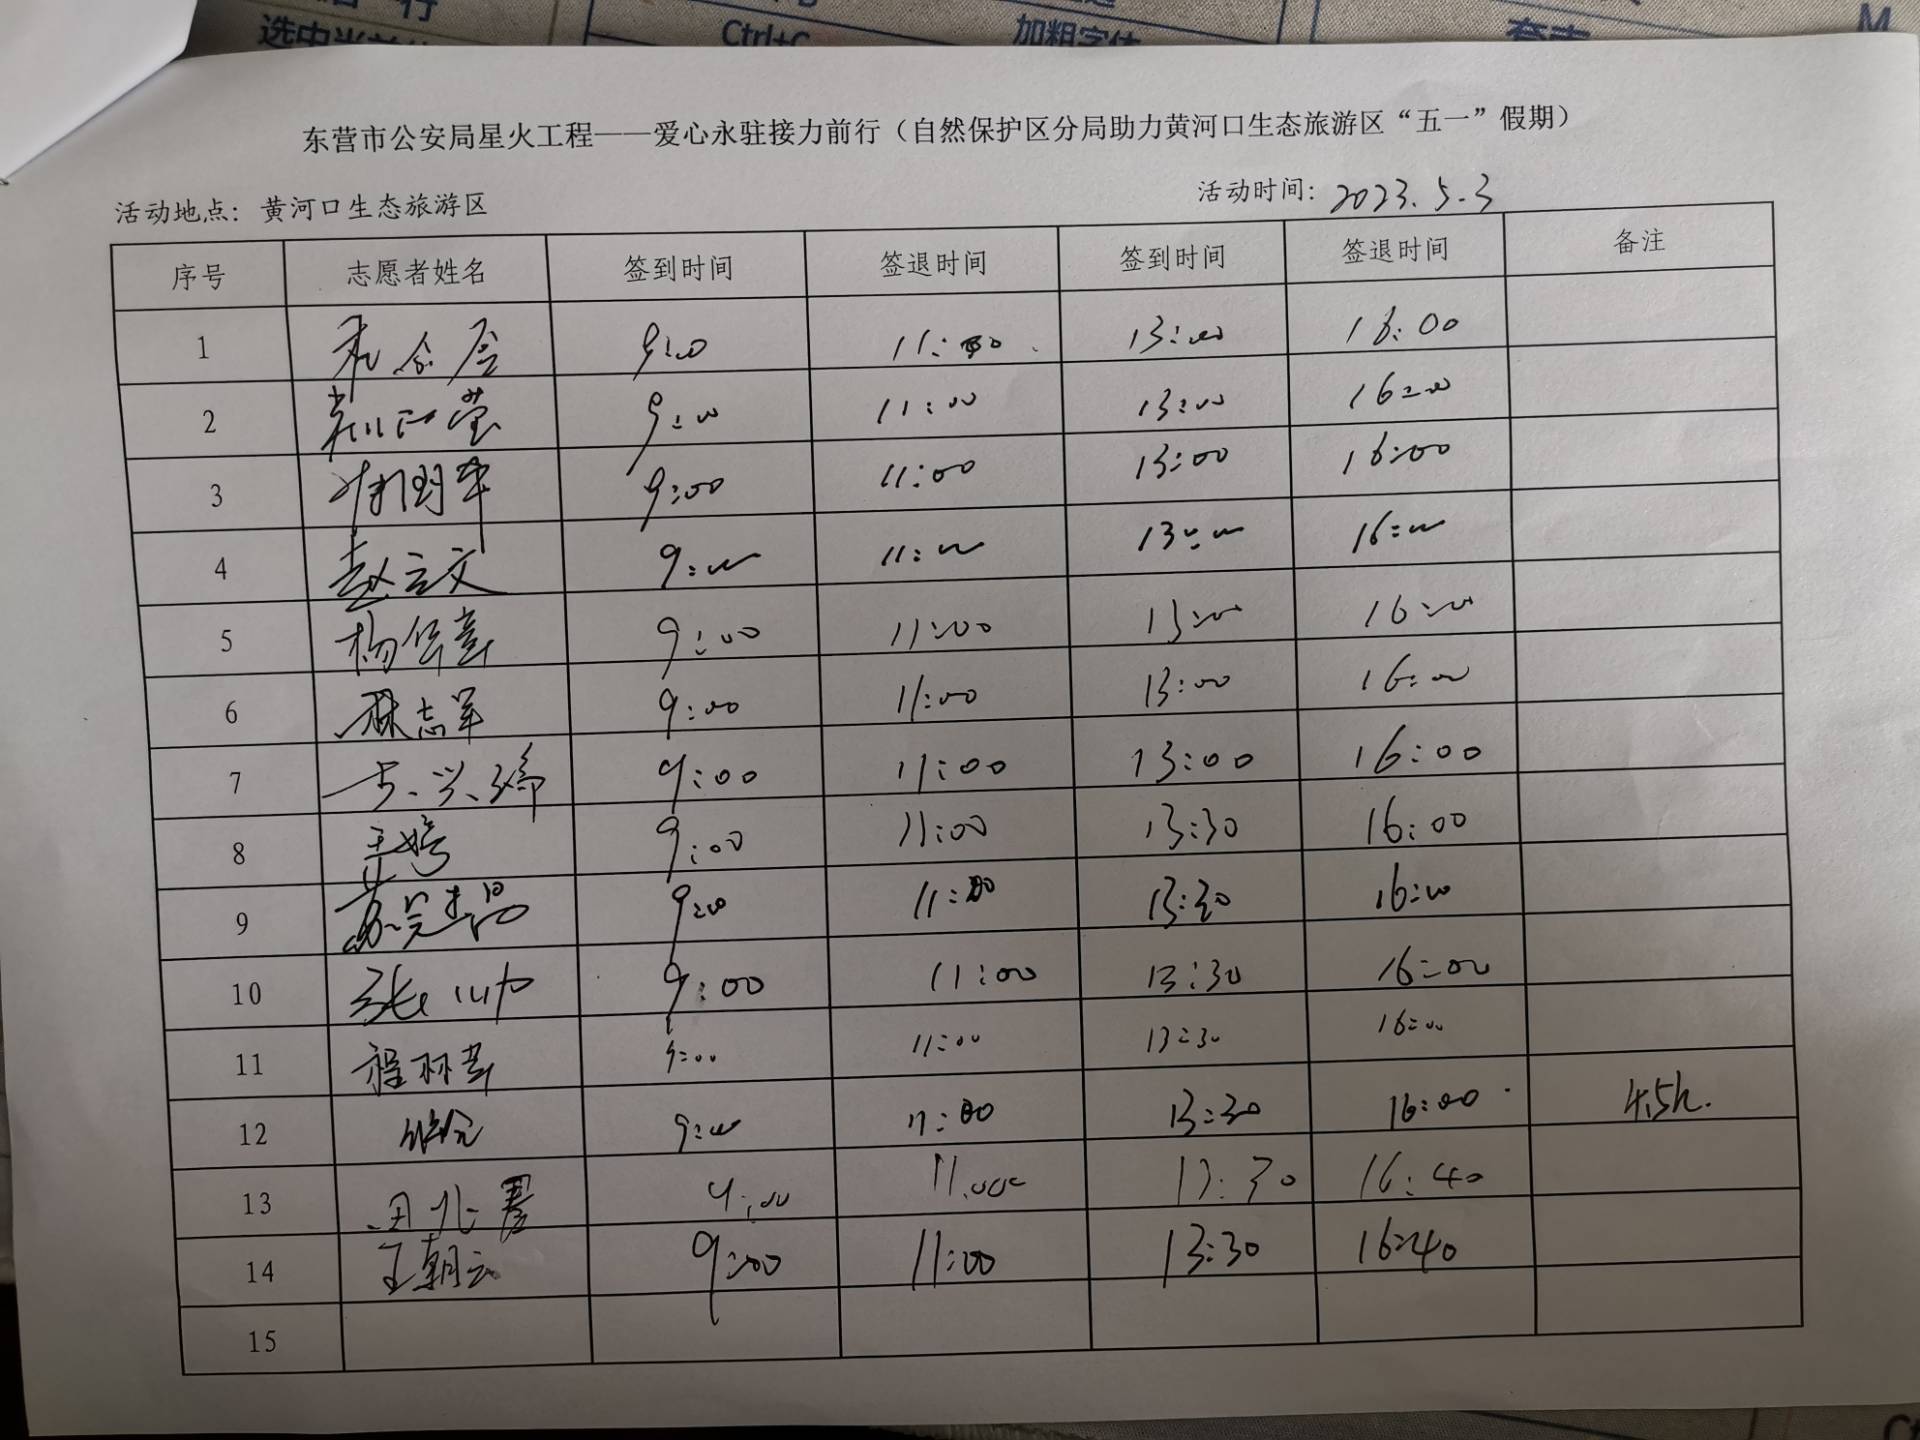 选中当前
Ctrl+C
加粗字体
M
东营市公安局星火工程——爱心永驻接力前行（自然保护区分局助力黄河口生态旅游区“五一”假期）
活动地点：黄河口生态旅游区 活动时间：2023.5.3
序号 志愿者姓名 签到时间 签退时间 签到时间 签退时间 备注
1 9:00 11:00 13:00 16:00
2 9:00 11:00 13:00 16:00
3 9:00 11:00 13:00 16:00
4 赵立文 9:00 11:00 13:00 16:00
5 9:00 11:00 13:00 16:00
6 林志军 9:00 11:00 13:00 16:00
7 9:00 11:00 13:00 16:00
8 王婷 9:00 11:00 13:30 16:00
9 9:00 11:00 13:30 16:00
10 张 9:00 11:00 13:30 16:00
11 程羽 9:00 11:00 13:30 16:00
12 9:00 11:00 13:30 16:00 4.5h.
13 9:00 11:00 13:30 16:40
14 王朝云 9:00 11:00 13:30 16:40
15